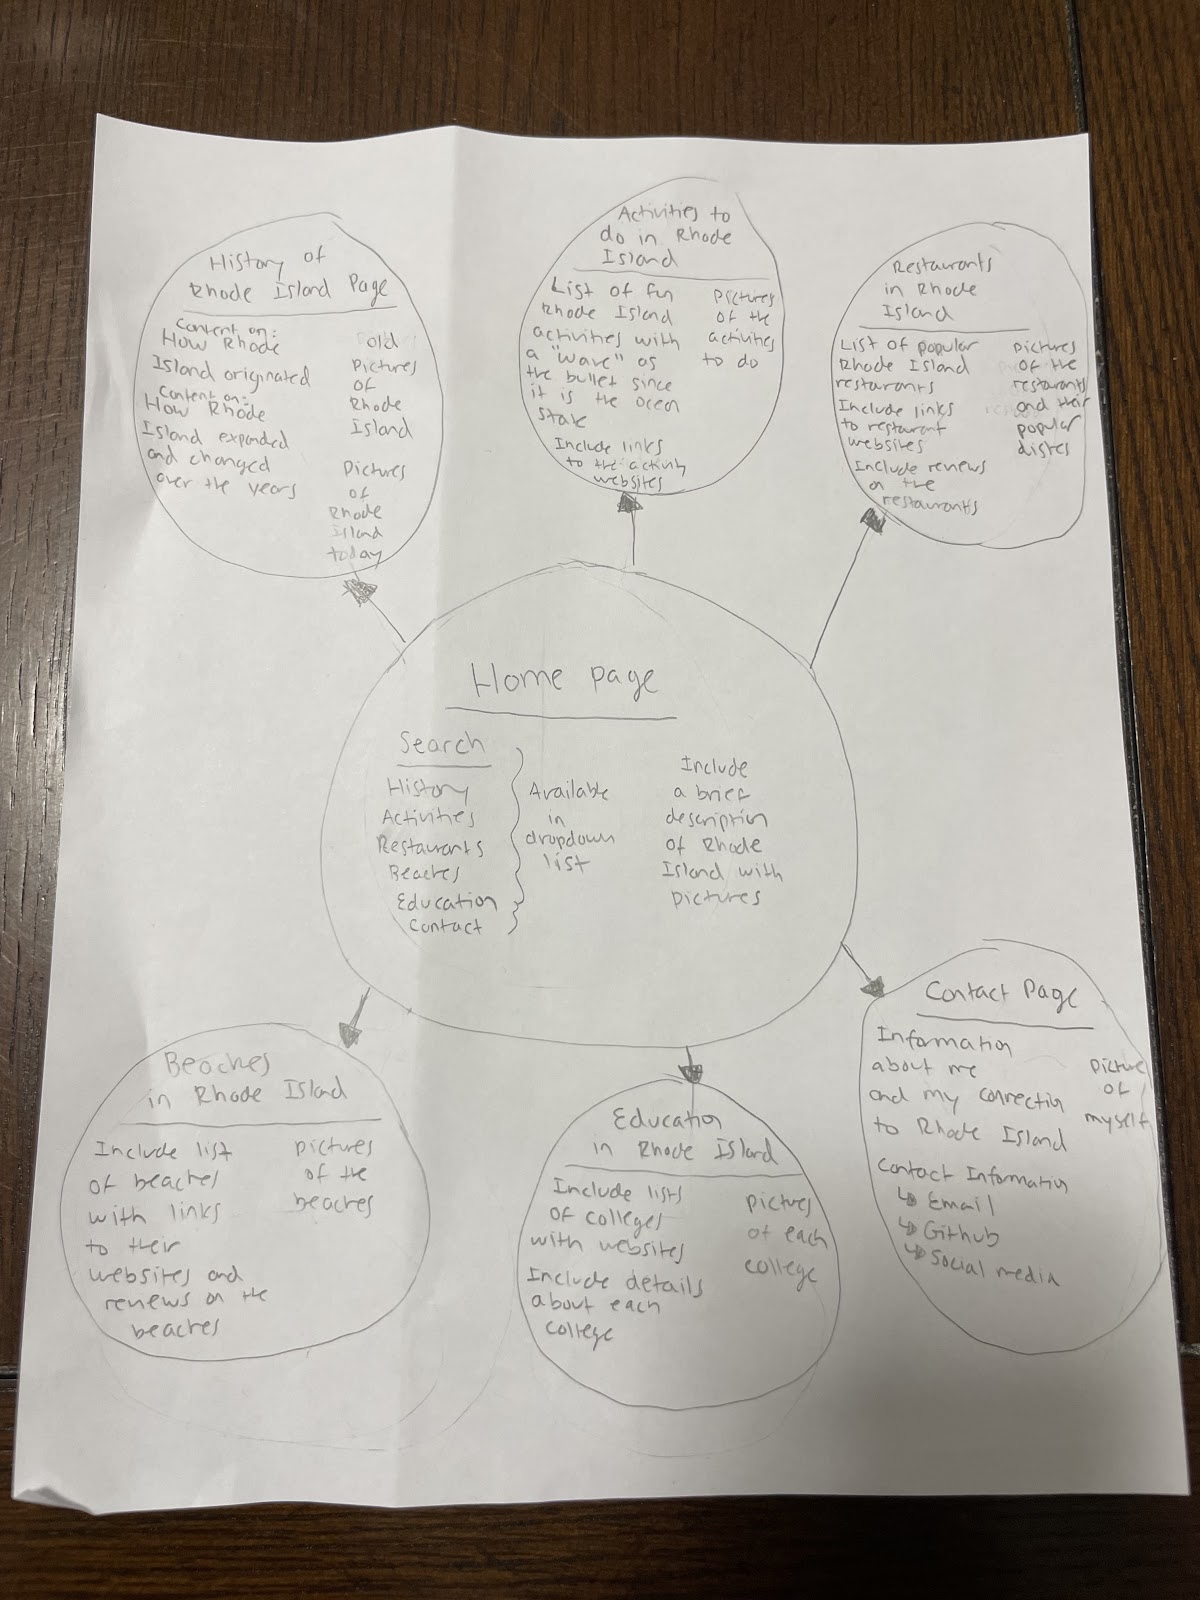 History of
Rhode Island Page
Content on:
How Rhode
Island originated
Content on:
How Rhode
Island expanded
and changed
over the years
old
Pictures
of
Rhode
Island
Pictures
of
Rhode
Island
today
Activities to
do in Rhode
Island
List of fun
Rhode Island
activities with
a "wave" as
the bullet since
it is the ocean
state
Include links
to the activity
websites
Pictures
of the
activities
to do
Restaurants
in Rhode
Island
List of popular
Rhode Island
restaurants
Include links
to restaurant
websites
Include reviews
on the
restaurants
Pictures
of the
restaurants
and their
popular
dishes
Home page
Search
History
Activities
Restaurants
Beaches
Education
Contact
Available
in
dropdown
list
Include
a brief
description
of Rhode
Island with
pictures
Beaches
in Rhode Island
Include list
of beaches
with links
to their
websites and
reviews on the
beaches
pictures
of the
beaches
Education
in Rhode Island
Include lists
of colleges
with websites
Include details
about each
college
pictures
of each
college
Contact Page
Information
about me
and my connection
to Rhode Island
Contact Information
↳ Email
↳ Github
↳ Social media
picture
of
myself